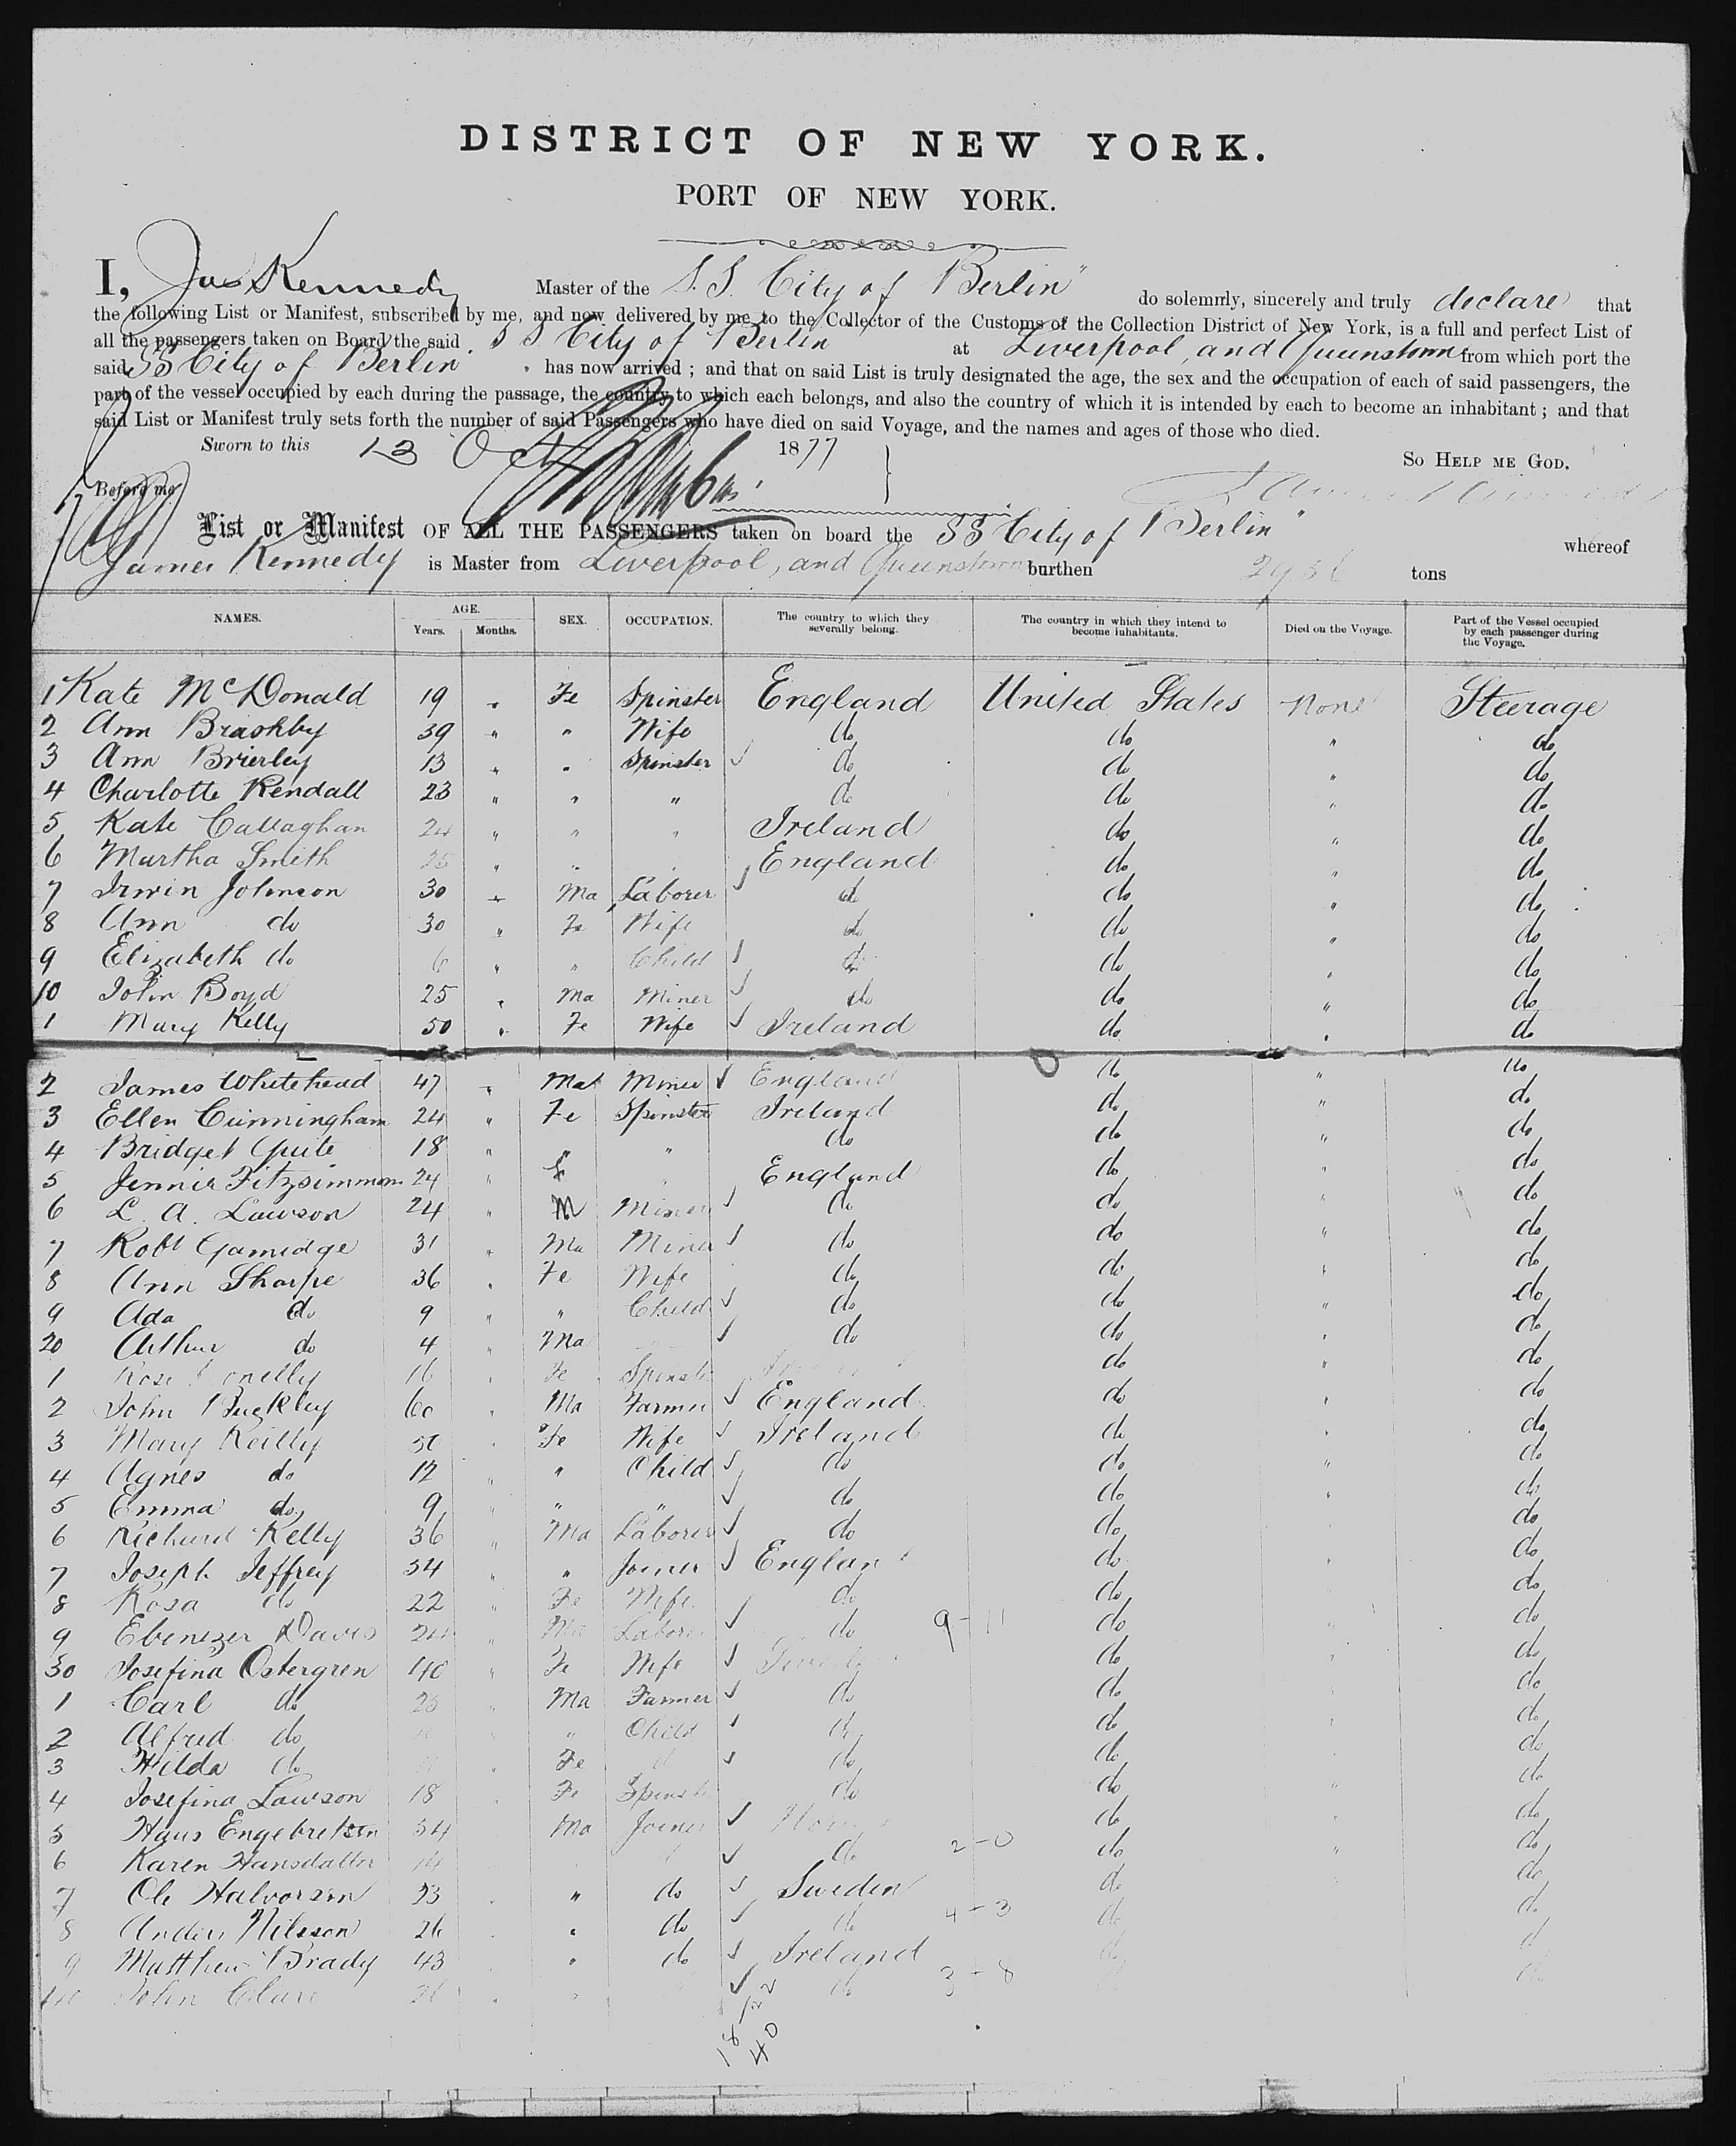 DISTRICT OF NEW YORK.
PORT OF NEW YORK.
I, Jas Kennedy Master of the S.S. City of Berlin" do solemnly, sincerely and truly declare that
the following List or Manifest, subscribed by me, and now delivered by me to the Collector of the Customs of the Collection District of New York, is a full and perfect List of
all the passengers taken on Board the said S S City of Berlin at Liverpool, and Queenstown from which port the
said SS City of Berlin has now arrived ; and that on said List is truly designated the age, the sex and the occupation of each of said passengers, the
part of the vessel occupied by each during the passage, the country to which each belongs, and also the country of which it is intended by each to become an inhabitant ; and that
said List or Manifest truly sets forth the number of said Passengers who have died on said Voyage, and the names and ages of those who died.
Sworn to this 13 Oct 1877
So Help me God.
Before me
List or Manifest OF ALL THE PASSENGERS taken on board the SS City of Berlin" whereof
James Kennedy is Master from Liverpool, and Queenstown burthen tons
NAMES. AGE. Years. Months. SEX. OCCUPATION. The country to which they severally belong. The country in which they intend to become inhabitants. Died on the Voyage. Part of the Vessel occupied by each passenger during the Voyage.
1 Kate McDonald 19 " Fe Spinster England United States None Steerage
2 Ann Brashby 39 " " Wife do do " do
3 Ann Brierley 13 " " Spinster do do " do
4 Charlotte Kendall 23 " " " do do " do
5 Kate Callaghan 24 " " " Ireland do " do
6 Martha Smith 25 " " " England do " do
7 Irwin Johnson 30 " Ma Laborer do do " do
8 Ann do 30 " Fe Wife do do " do
9 Elizabeth do 6 " " Child do do " do
10 John Boyd 25 " Ma Miner do do " do
1 Mary Kelly 50 " Fe Wife Ireland do " do
2 James Whitehead 47 " Mal Miner England do " do
3 Ellen Cunningham 24 " Fe Spinster Ireland do " do
4 Bridget Quite 18 " " " do do " do
5 Jennie Fitzsimmons 24 " f " England do " do
6 L. A. Lawson 24 " M Miner do do " do
7 Robt Gamidge 31 " Ma Miner do do " do
8 Ann Sharpe 36 " Fe Wife do do " do
9 Ada do 9 " " Child do do " do
20 Arthur do 4 " Ma do do " do
1 Rose 16 " Fe Spinst do " do
2 John Buckley 60 " Ma Farmer England do " do
3 Mary Reilly 50 " Fe Wife Ireland do " do
4 Agnes do 12 " " Child do do " do
5 Emma do 9 " " " do do " do
6 Richard Kelly 36 " Ma Laborer do do do
7 Joseph Jeffrey 34 " " Joiner England do " do
8 Rosa do 22 " Fe Wife do do do
9 Ebenezer Davis 24 " Ma Laborer do 9-11 do " do
30 Josefina Ostergren 40 " Fe Wife do " do
1 Carl do " Ma Farmer do do do
2 Alfred do " Child do do " do
3 Hilda do " Fe do do do
4 Josefina Lawson 18 Fe Spinst do do " do
5 Hans Engebretsen 34 Ma Joiner do " do
6 Karen Hansdatter do 2-0 do " do
7 Ole Halvorsen 33 " do Sweden do do
8 Anders Nilsson 26 " do do 4-3 do do
9 Matthew Brady 43 " do Ireland do
John 3-8
18
40